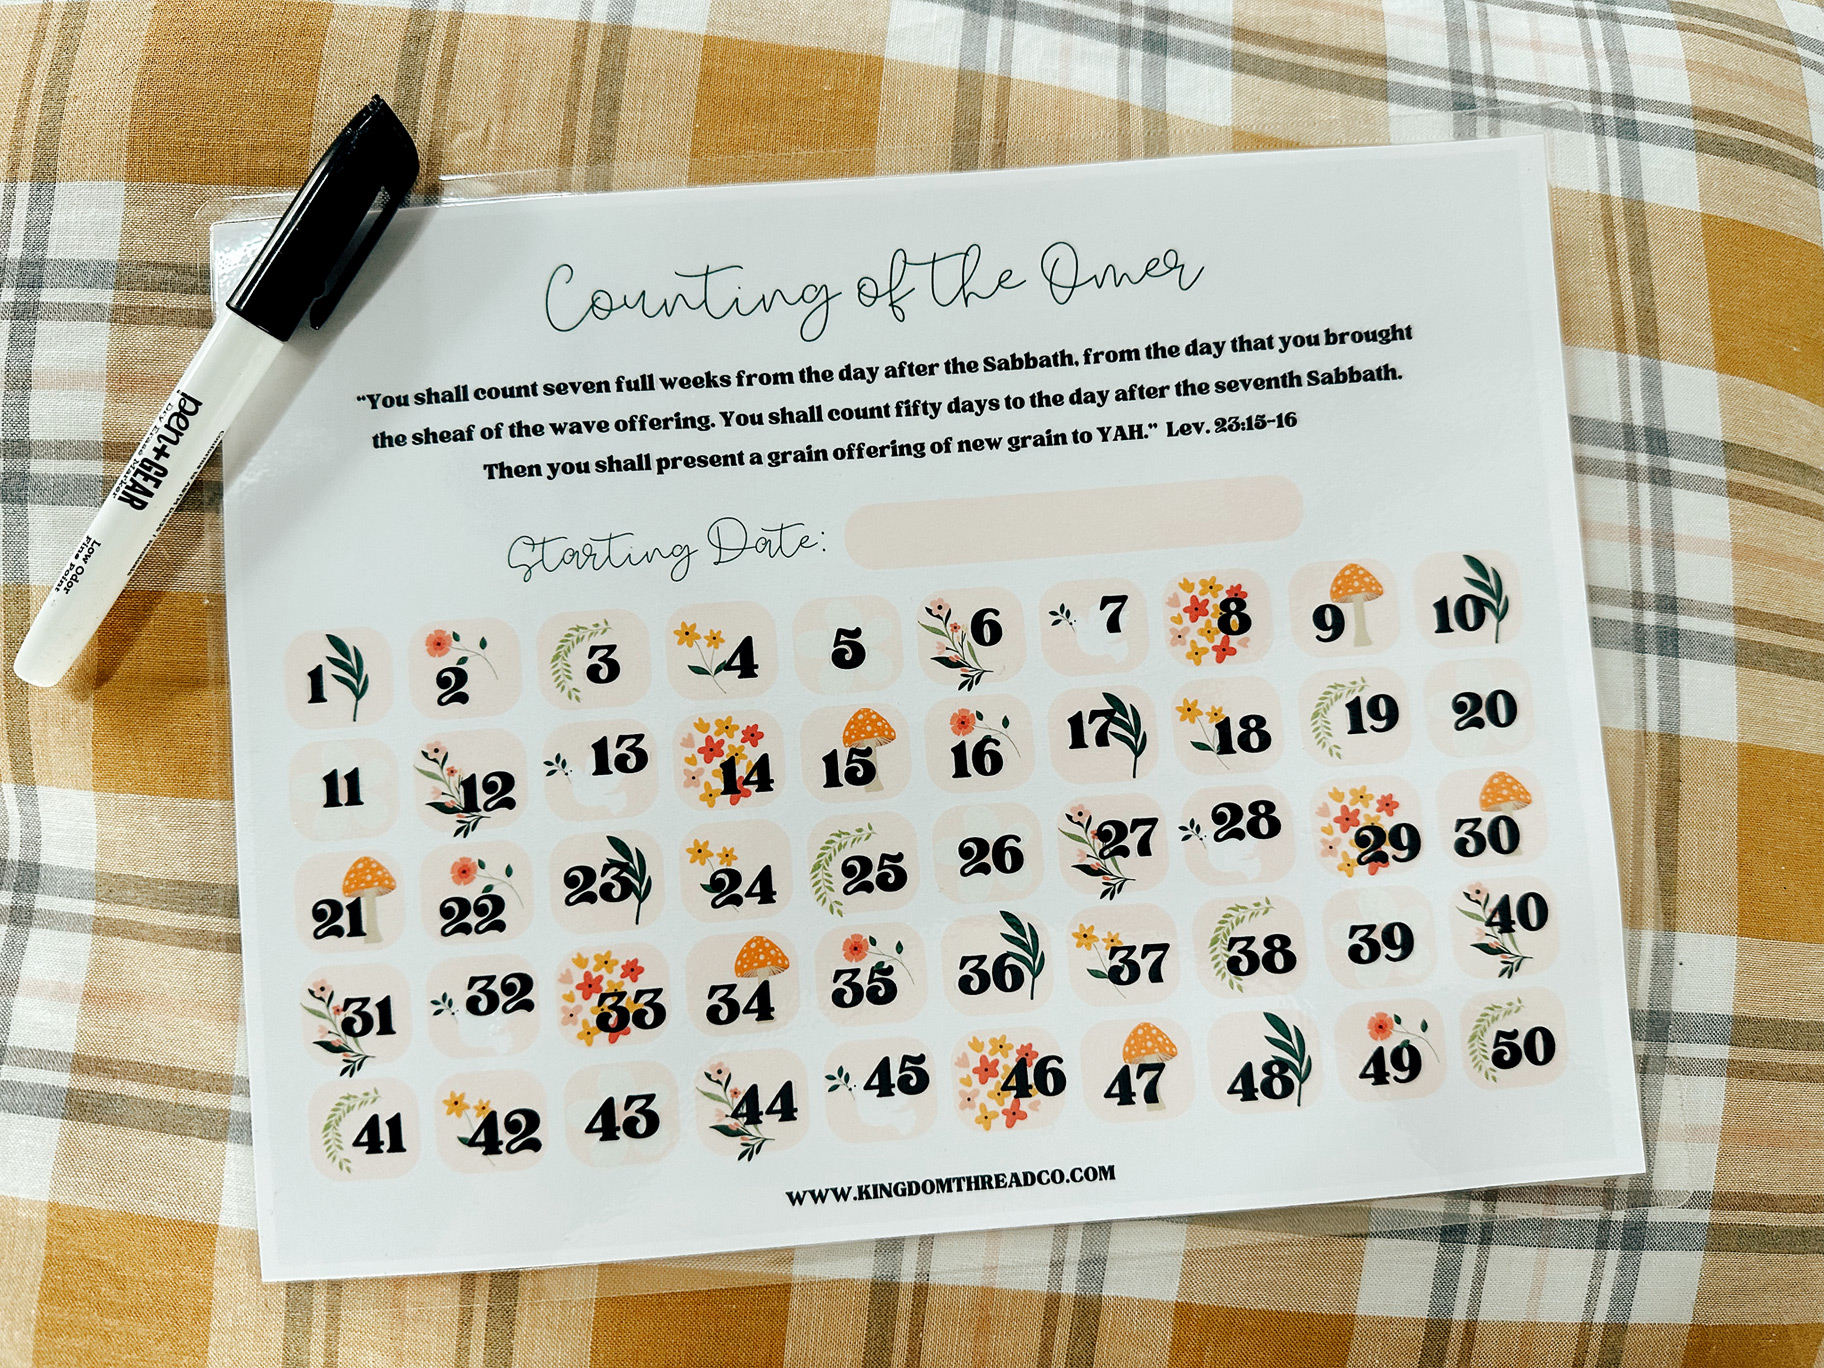 Counting of the Omer
“You shall count seven full weeks from the day after the Sabbath, from the day that you brought
the sheaf of the wave offering. You shall count fifty days to the day after the seventh Sabbath.
Then you shall present a grain offering of new grain to YAH.” Lev. 23:15-16
Starting Date:
1 2 3 4 5 6 7 8 9 10
11 12 13 14 15 16 17 18 19 20
21 22 23 24 25 26 27 28 29 30
31 32 33 34 35 36 37 38 39 40
41 42 43 44 45 46 47 48 49 50
WWW.KINGDOMTHREADCO.COM
pen+GEAR
Dry Erase Marker
Low Odor
Fine Point